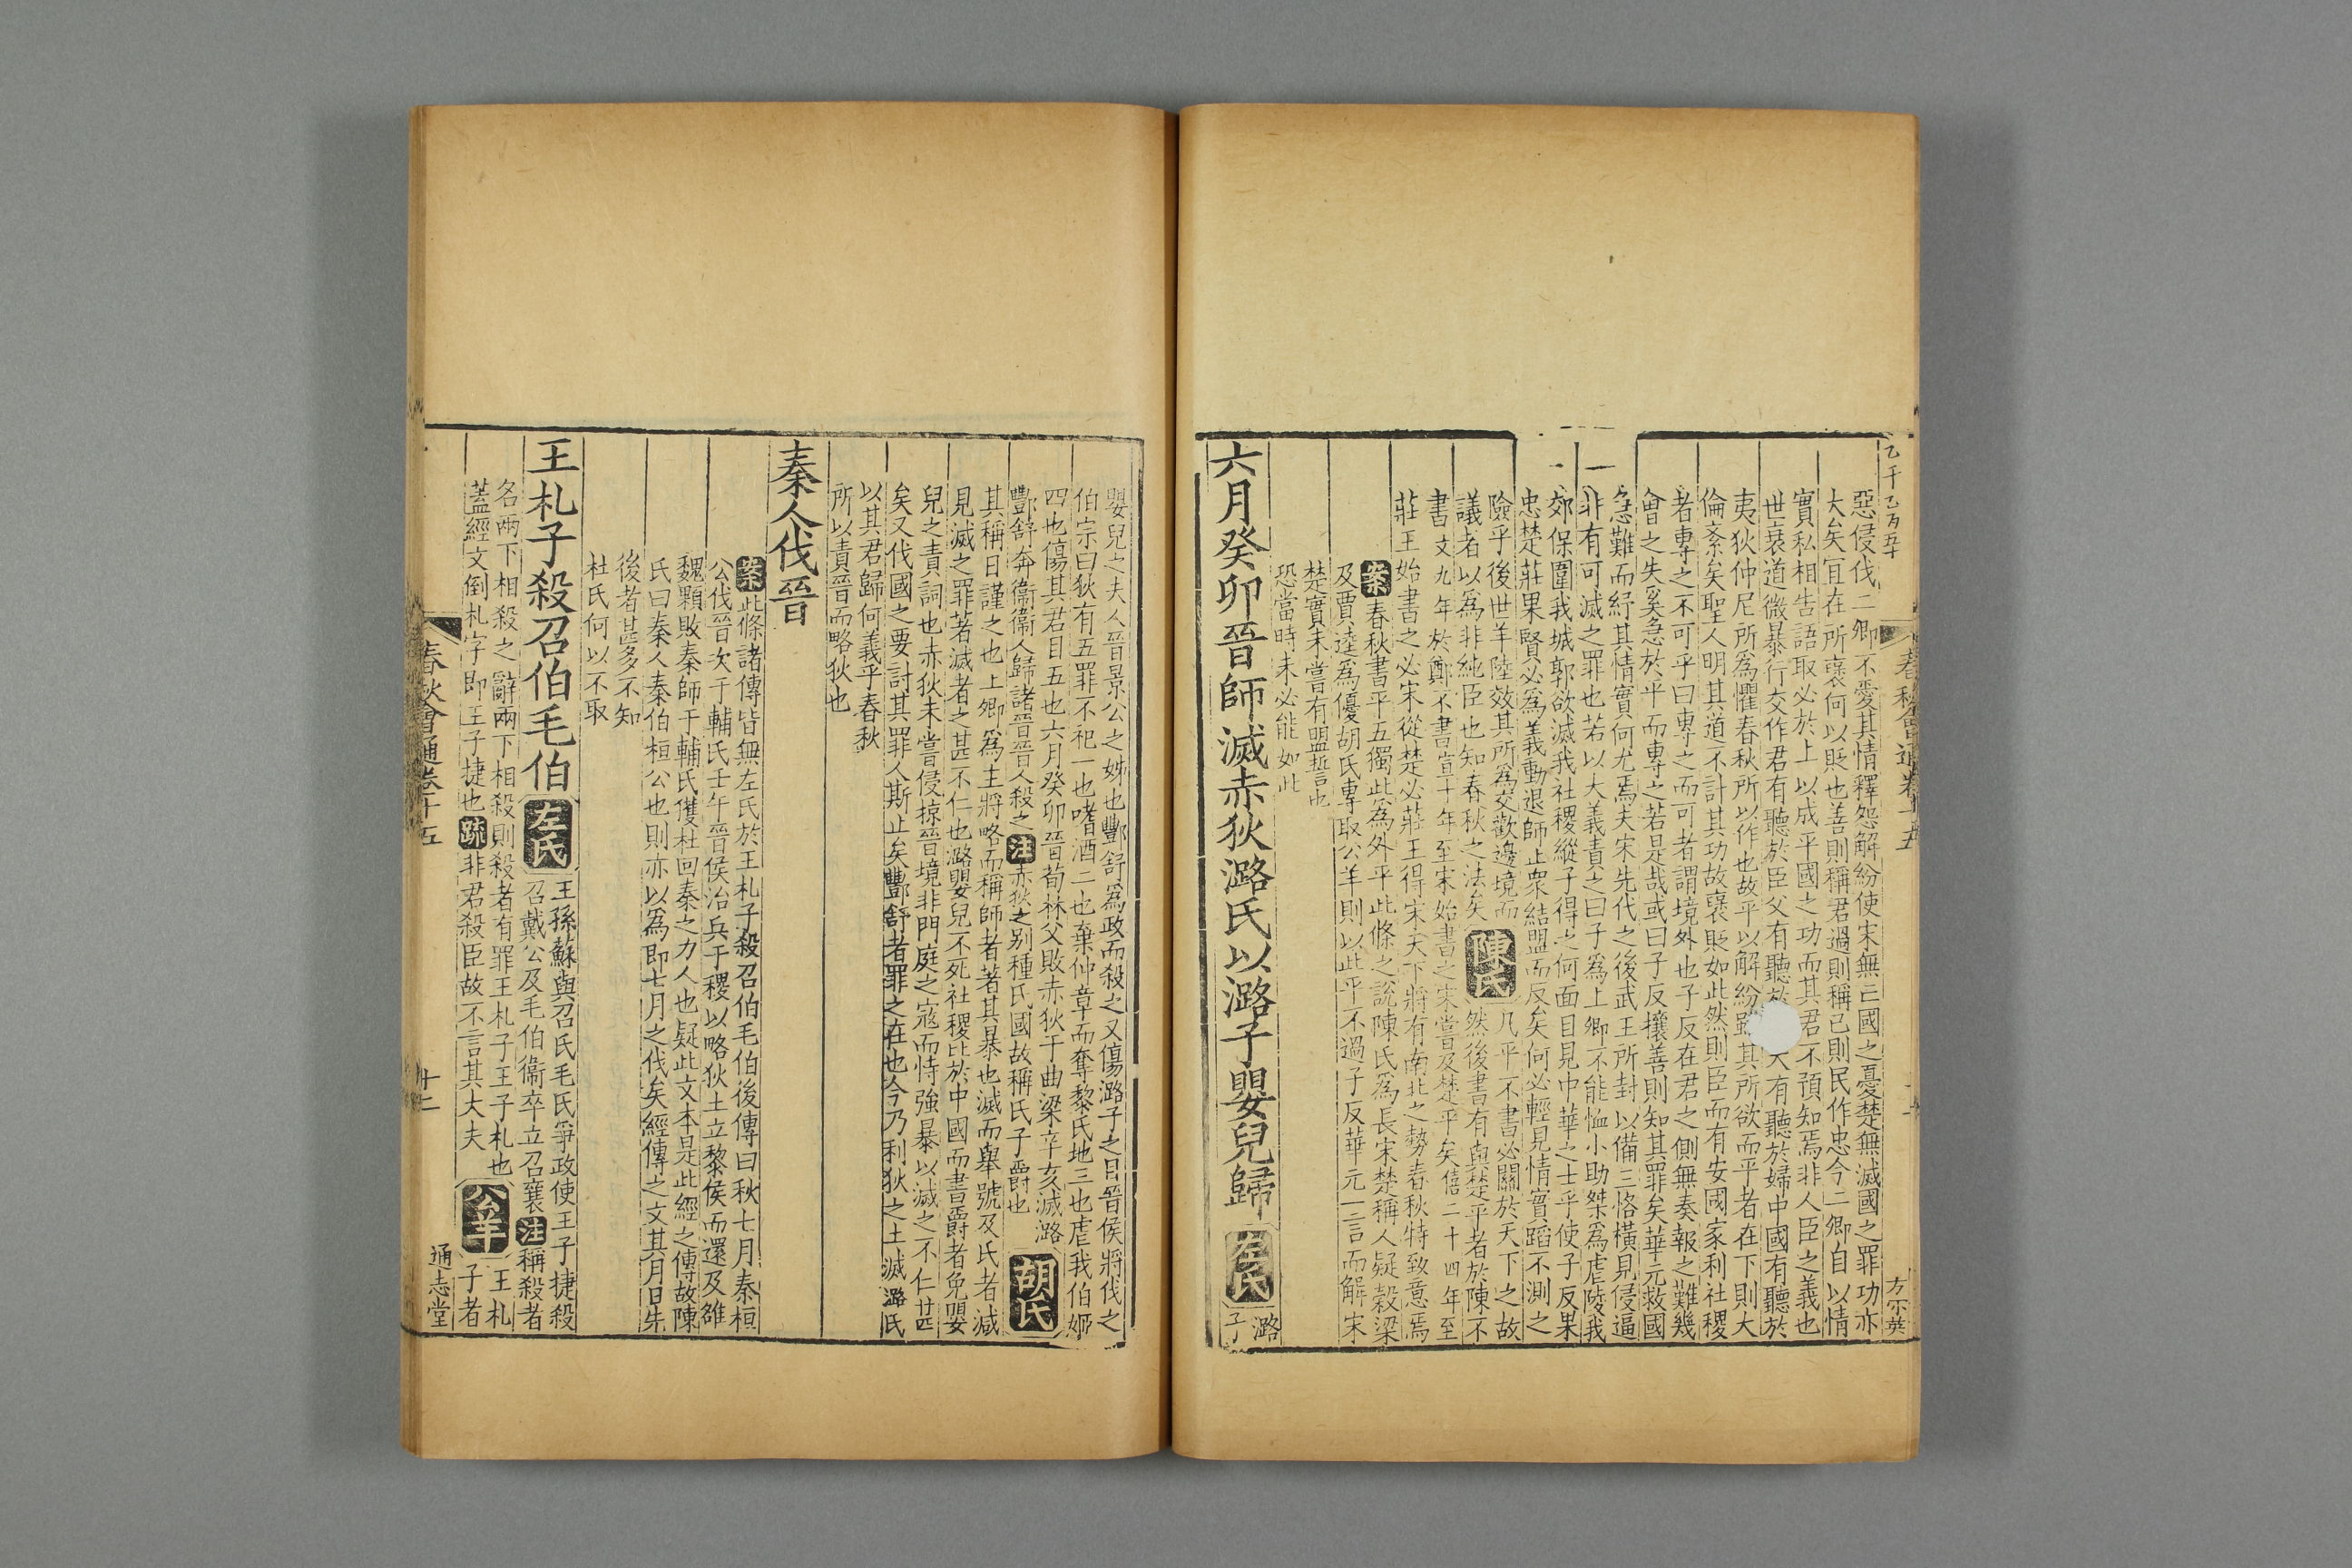 惡侵伐二卿不愛其情釋怨解紛使宋無亡國之憂楚無滅國之罪功亦
大矣宜在所襃何以貶也善則稱君過則稱己則民作忠今二卿自以情
實私相告語取必於上以成平國之功而其君不預知焉非人臣之義也
世衰道微暴行交作君有聽於臣父有聽於 夫有聽於婦中國有聽於
夷狄仲尼所爲懼春秋所以作也故平以解紛雖其所欲而平者在下則大
倫紊矣聖人明其道不計其功故襃貶如此然則臣而有安國家利社稷
者專之不可乎曰專之而可者謂境外也子反在君之側無奏報之難幾
會之失奚急於平而專之若是哉或曰子反攘善則知其罪矣華元救國
急難而紓其情實何尤焉夫宋先代之後武王所封以備三恪橫見侵逼
非有可滅之罪也若以大義責之曰子爲上卿不能恤小助桀爲虐陵我
郊保圍我城郭欲滅我社稷縱子得之何面目見中華之士乎使子反果
忠楚莊果賢必爲義動退師止衆結盟而反矣何必輕見情實蹈不測之
險乎後世羊陸效其所爲交歡邊境而
議者以爲非純臣也知春秋之法矣
陳氏
凡平不書必關於天下之故
然後書有與楚平者於陳不
書文九年於鄭不書宣十年至宋始書之宋嘗及楚平矣僖二十四年至
莊王始書之必宋從楚必莊王得宋天下將有南北之勢春秋特致意焉
案春秋書平五獨此爲外平此條之說陳氏爲長宋楚稱人疑穀梁
及賈逵爲優胡氏專取公羊則以此平不過子反華元一言而解宋
楚實未嘗有盟誓也
恐當時未必能如此
六月癸卯晉師滅赤狄潞氏以潞子嬰兒歸
左氏
潞
子
乙千乙百五十
春秋會通卷十五
方宗英
嬰兒之夫人晉景公之姊也酆舒爲政而殺之又傷潞子之目晉侯將伐之
伯宗曰狄有五罪不祀一也嗜酒二也棄仲章而奪黎氏地三也虐我伯姬
四也傷其君目五也六月癸卯晉荀林父敗赤狄于曲梁辛亥滅潞
酆舒奔衞衞人歸諸晉晉人殺之注赤狄之别種氏國故稱氏子爵也
胡氏
其稱日謹之也上卿爲主將略而稱師者著其暴也滅而舉號及氏者滅
見滅之罪著滅者之甚不仁也潞嬰兒不死社稷比於中國而書爵者免嬰
兒之責詞也赤狄未嘗侵掠晉境非門庭之寇而恃強暴以滅之不仁甚
矣又伐國之要討其罪人斯止矣酆舒者罪之在也今乃利狄之土滅潞氏
以其君歸何義乎春秋
所以責晉而略狄也
秦人伐晉
案此條諸傳皆無左氏於王札子殺召伯毛伯後傳曰秋七月秦桓
公伐晉次于輔氏壬午晉侯治兵于稷以略狄土立黎侯而還及雒
魏顆敗秦師于輔氏獲杜回秦之力人也疑此文本是此經之傳故陳
氏曰秦人秦伯桓公也則亦以爲即七月之伐矣經傳之文其月日失
後者甚多不知
杜氏何以不取
王札子殺召伯毛伯
左氏
王孫蘇與召氏毛氏爭政使王子捷殺
召戴公及毛伯衞卒立召襄注稱殺者
名兩下相殺之辭兩下相殺則殺者有罪王札子王子札也
蓋經文倒札字即王子捷也疏非君殺臣故不言其大夫
公羊
王札
子者
春秋會通卷十五
十二
通志堂